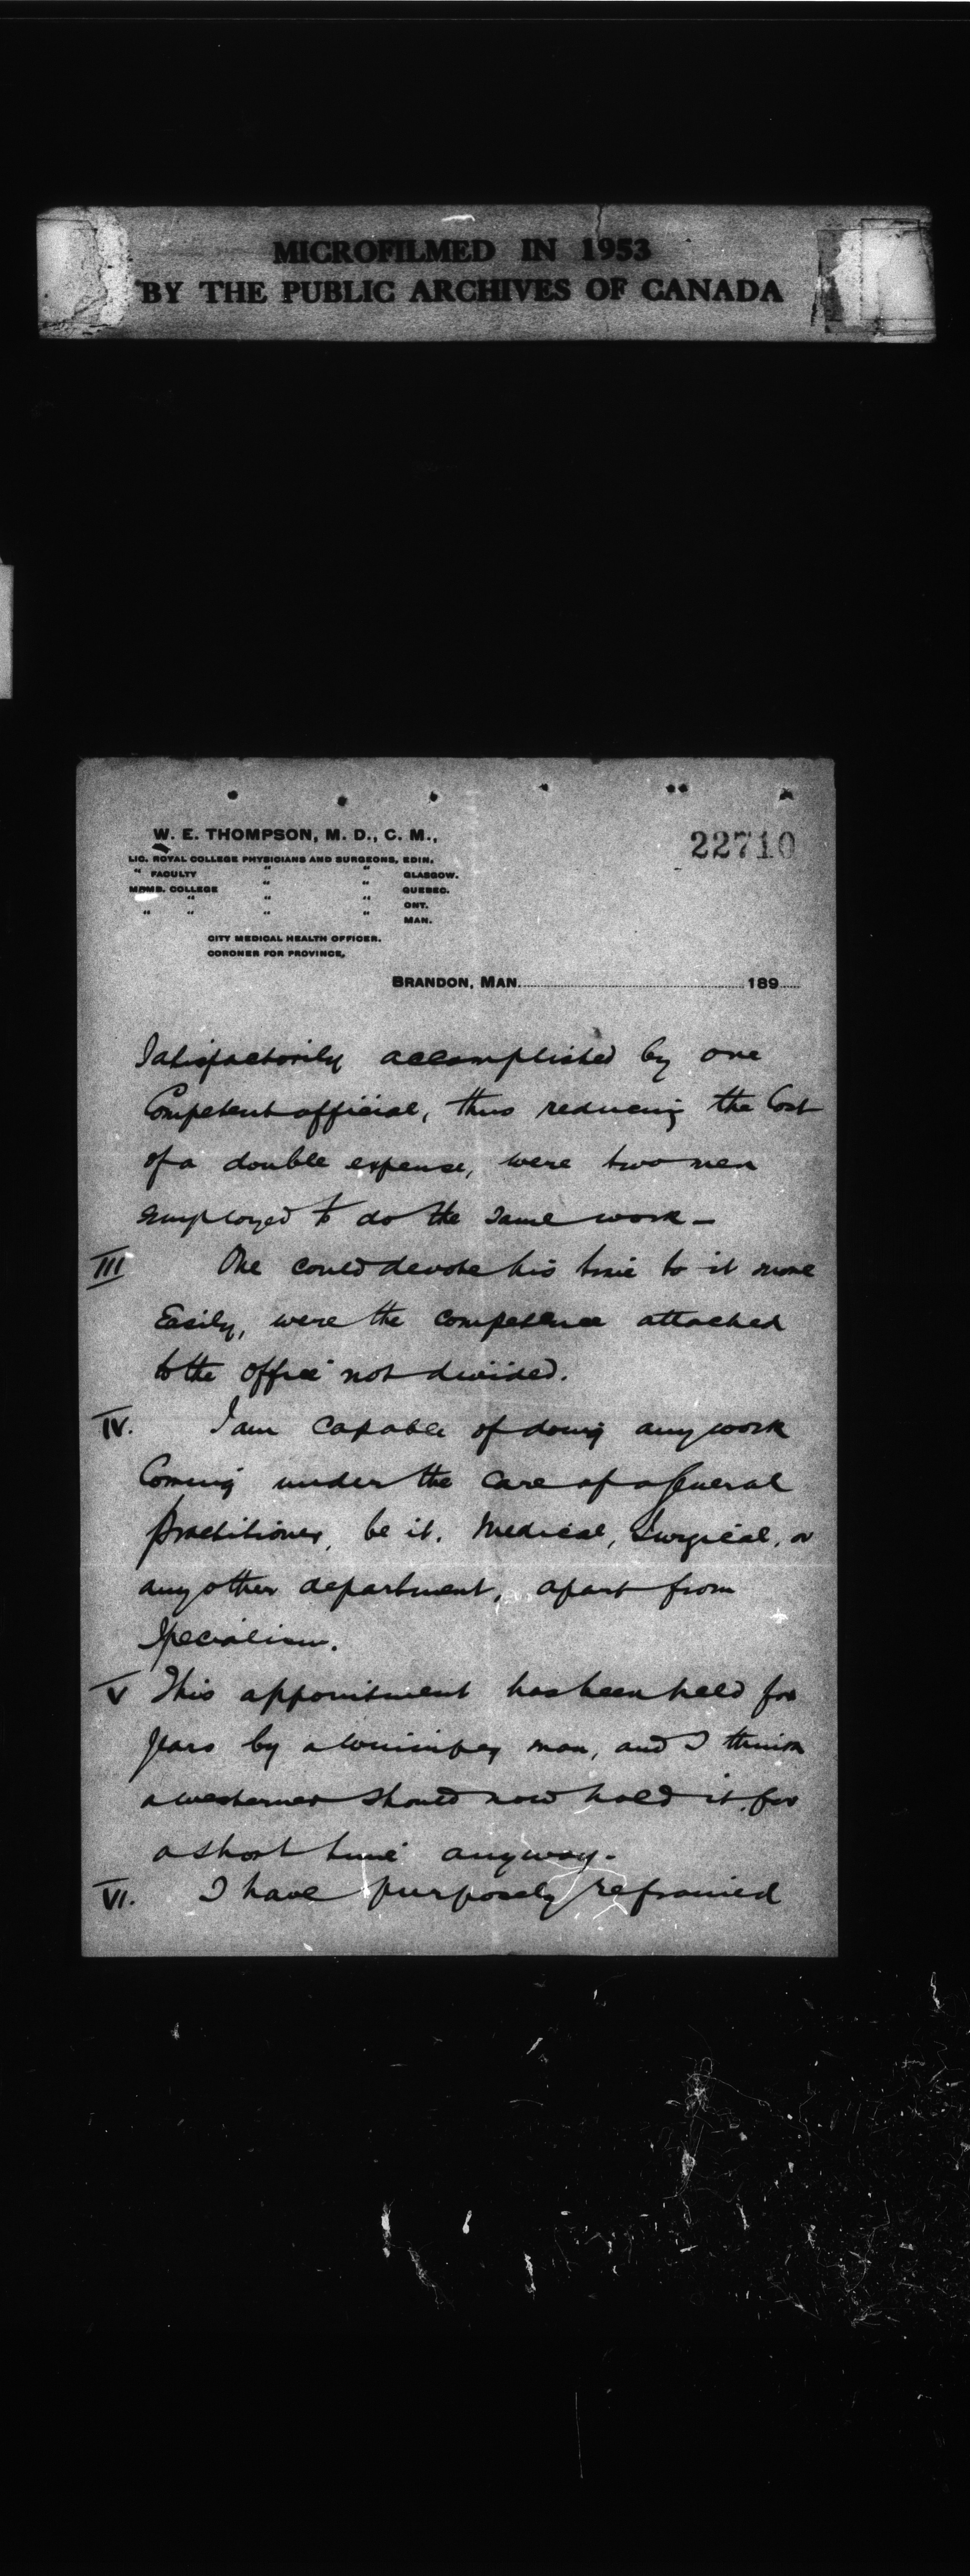 MICROFILMED IN 1953
BY THE PUBLIC ARCHIVES OF CANADA
W. E. THOMPSON, M. D., C. M.,
22710
LIC. ROYAL COLLEGE PHYSICIANS AND SURGEONS, EDIN.
" FACULTY " " GLASGOW.
MEMB. COLLEGE " " QUEBEC.
" " " " ONT.
" " " " MAN.
CITY MEDICAL HEALTH OFFICER.
CORONER FOR PROVINCE.
BRANDON, MAN. 189
Satisfactorily accomplished by one
Competent official, thus reducing the Cost
of a double expense, were two men
employed to do the same work -
III One could devote his time to it more
Easily, were the competence attached
to the office not divided.
IV. I am capable of doing any work
Coming under the care of a General
Practitioner, be it. Medical, Surgical, or
any other department, apart from
Specialism.
V This appointment has been held for
years by a Winnipeg man, and I think
a westerner should now hold it for
a short time anyway.
VI. I have purposely refrained